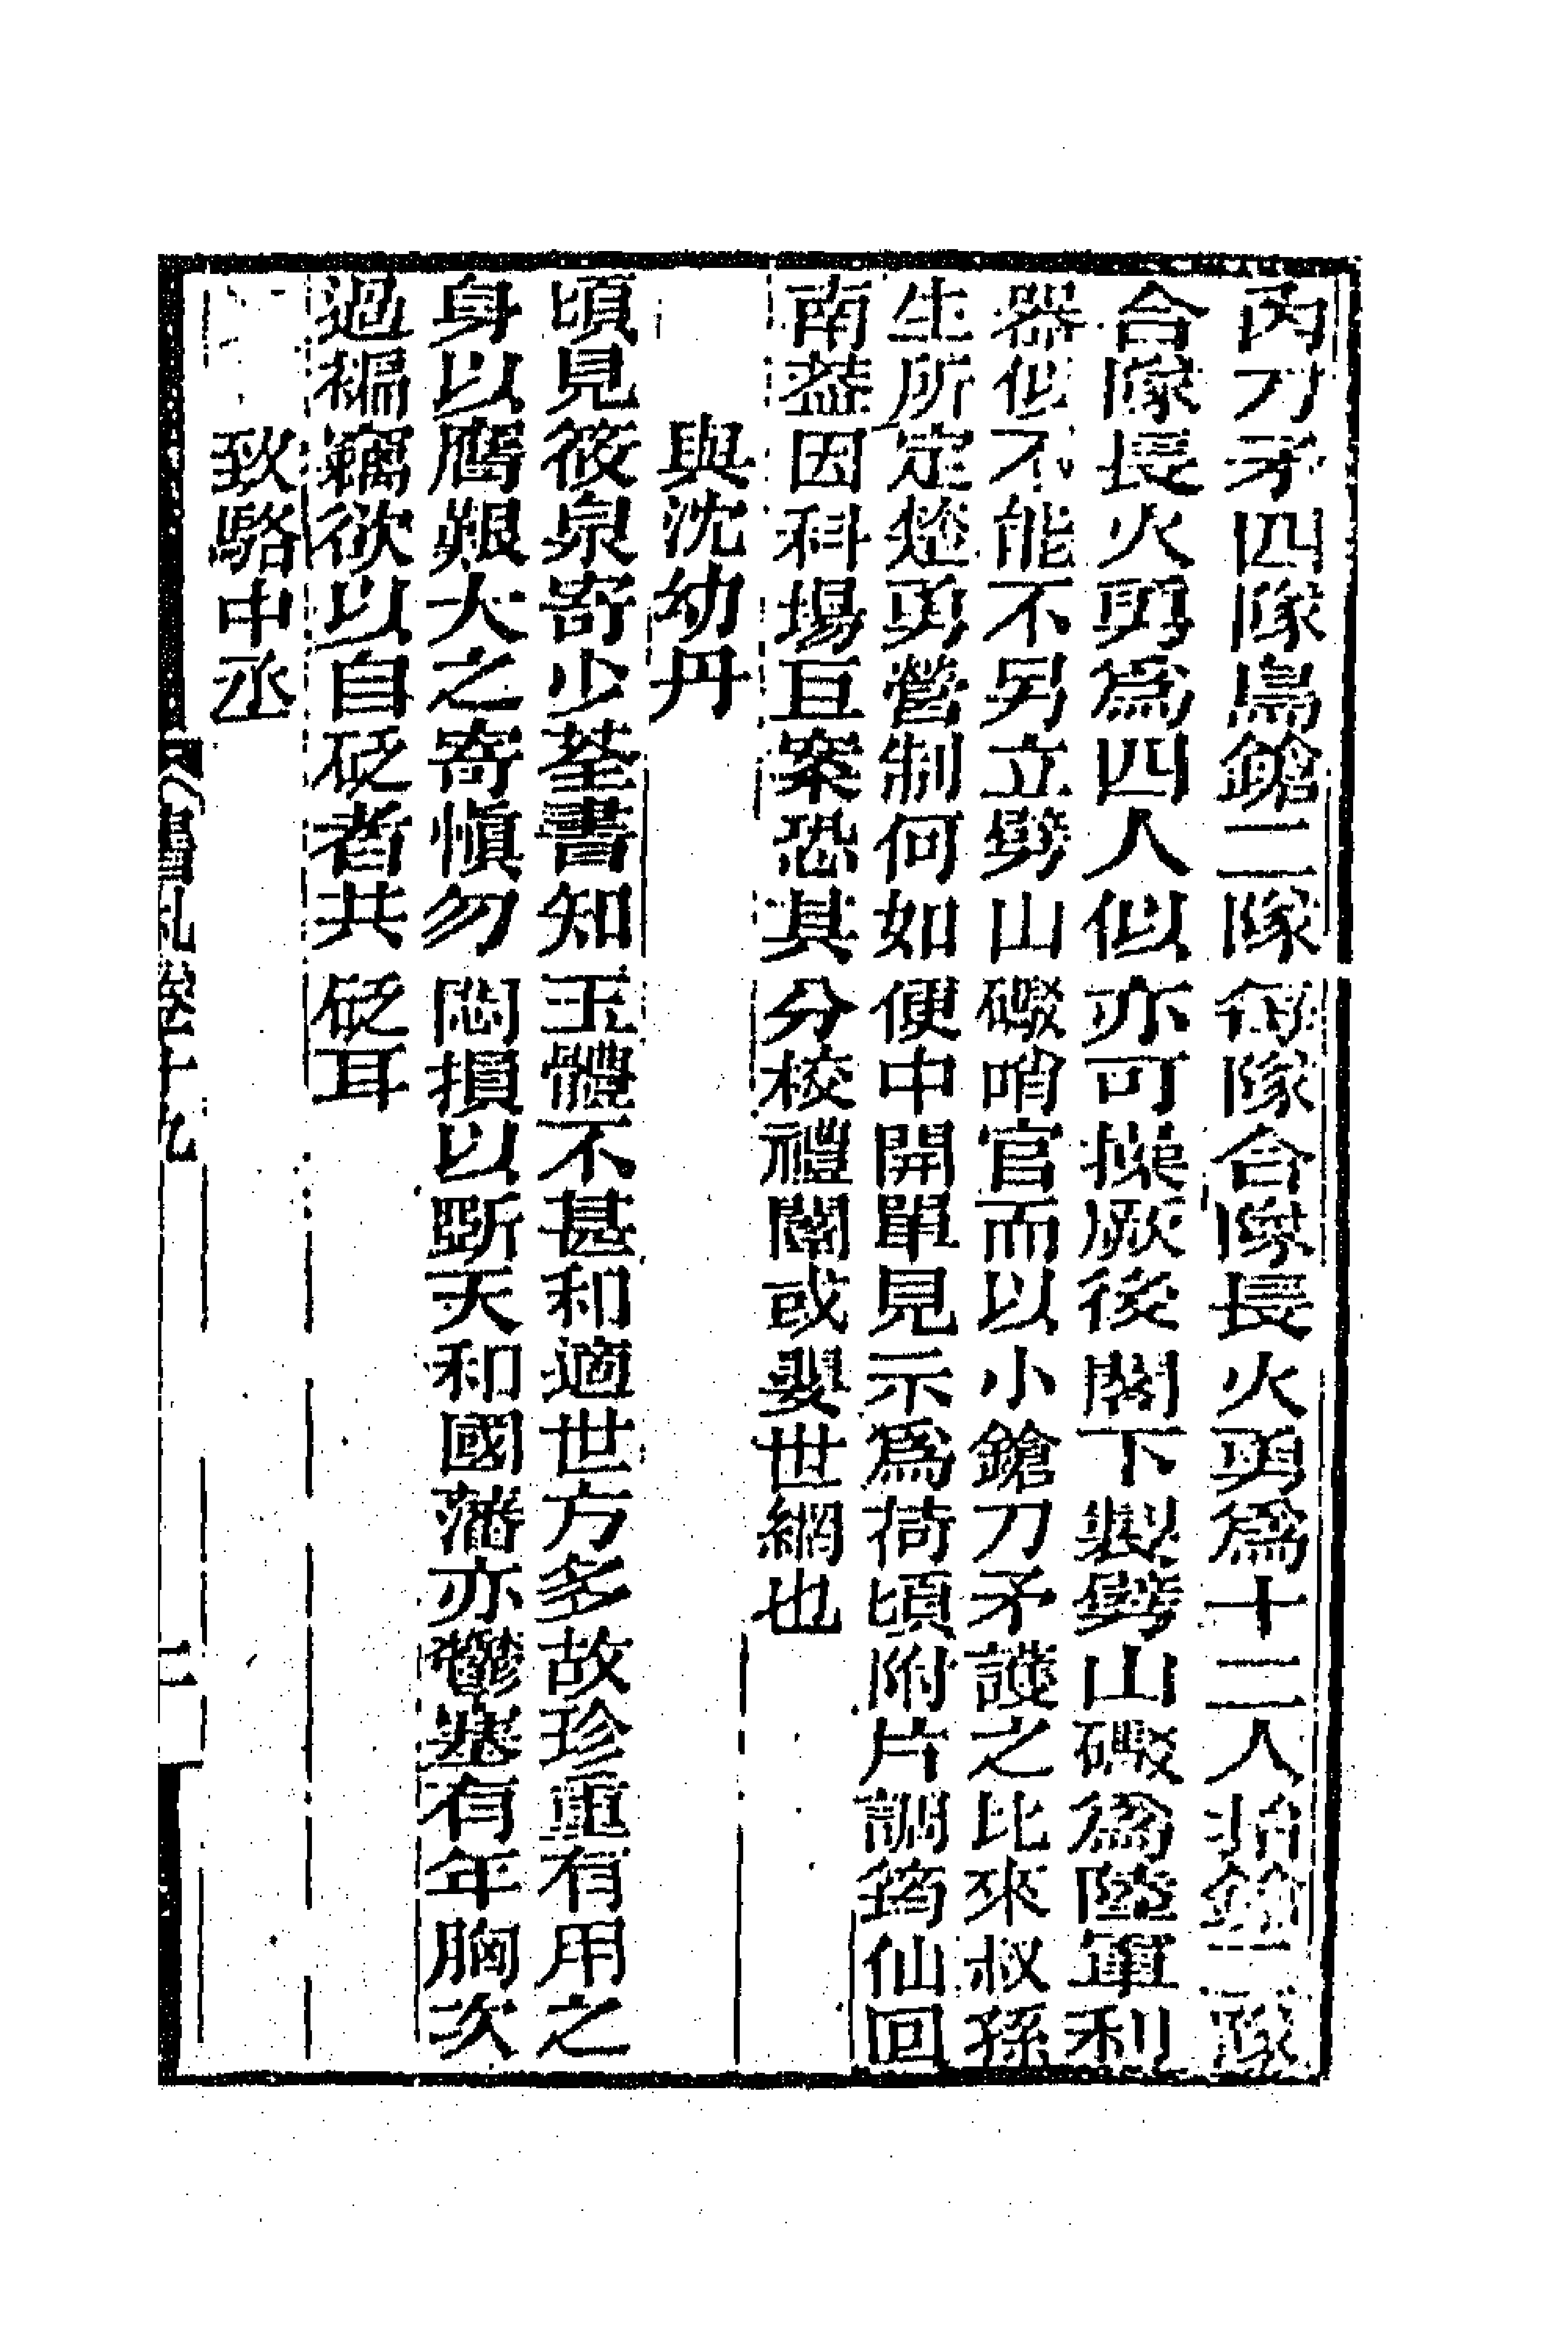 內刀矛四隊鳥鎗二隊每隊合隊長火勇爲十二人抬鎗二隊
合隊長火勇爲四人似亦可操厥後閣下製劈山礮爲陸軍利
器似不能不另立劈山礮哨官而以小鎗刀矛護之比來叔孫
生所定楚勇營制何如便中開單見示爲荷頃附片調筠仙回
南葢因科場巨案恐其分校禮闈或嬰世網也
與沈幼丹
頃見筱泉寄少荃書知玉體不甚和適世方多故珍重有用之
身以膺艱大之寄愼勿悶損以斲天和國藩亦鬱塞有年胸次
過褊竊欲以自砭者共砭耳
致駱中丞
書札卷十九
二